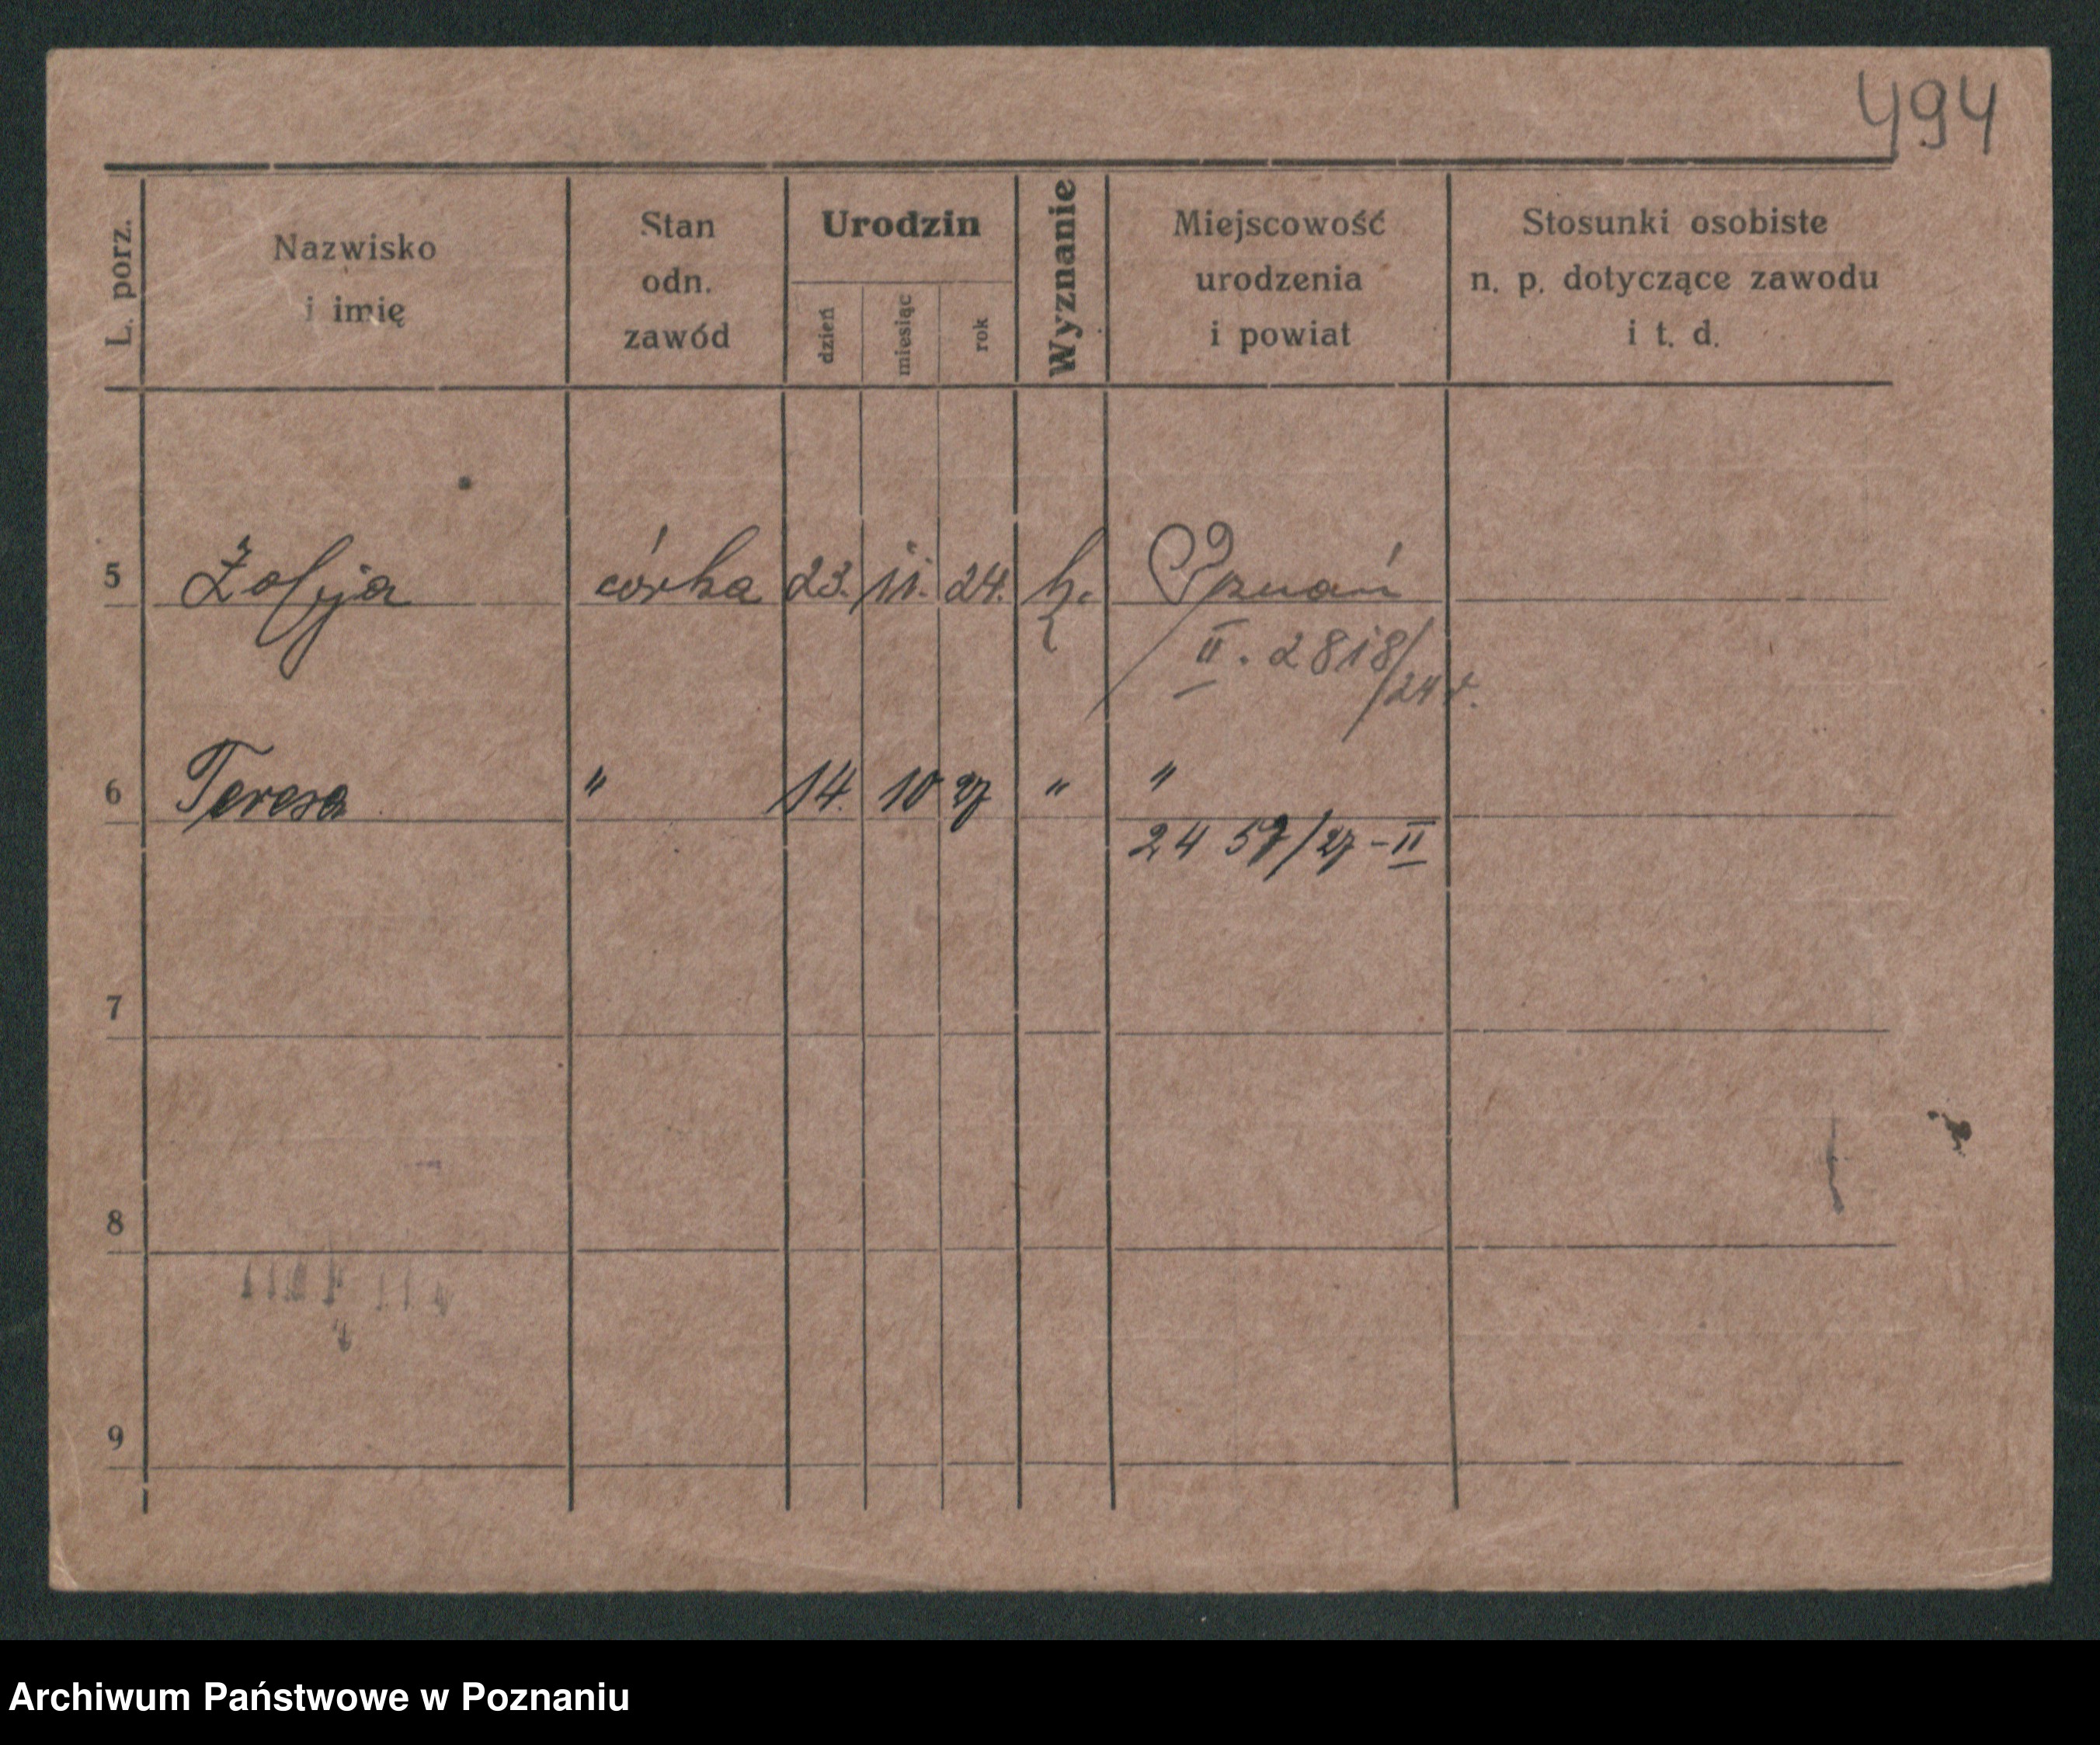 494
L. porz.
Nazwisko
i imię
Stan
odn.
zawód
Urodzin
dzień
miesiąc
rok
Wyznanie
Miejscowość
urodzenia
i powiat
Stosunki osobiste
n. p. dotyczące zawodu
i t. d.
5 Zofja córka 23. 11. 24. k. Poznań
II. 2818/24 r.
6 Teresa " 14. 10 27 " "
2457/27 - II
7
8
9
Archiwum Państwowe w Poznaniu